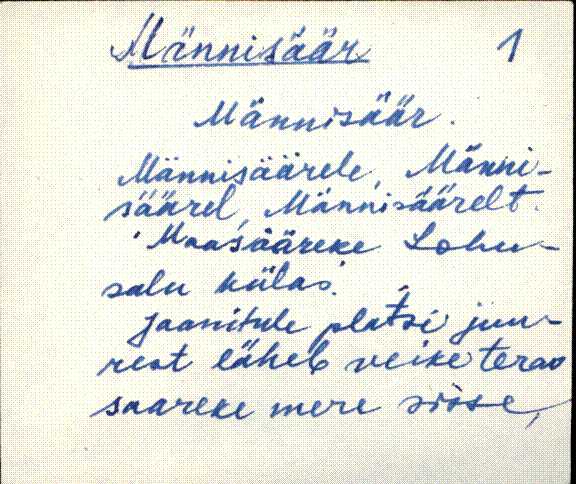 Männisäär 1
Männisäär.
Männisäärele, Männi-
säärel, Männisäärelt.
'Maasääreke Lohu-
salu külas.
Jaanitule platsi juu-
rest läheb veike terav
saareke mere sisse,